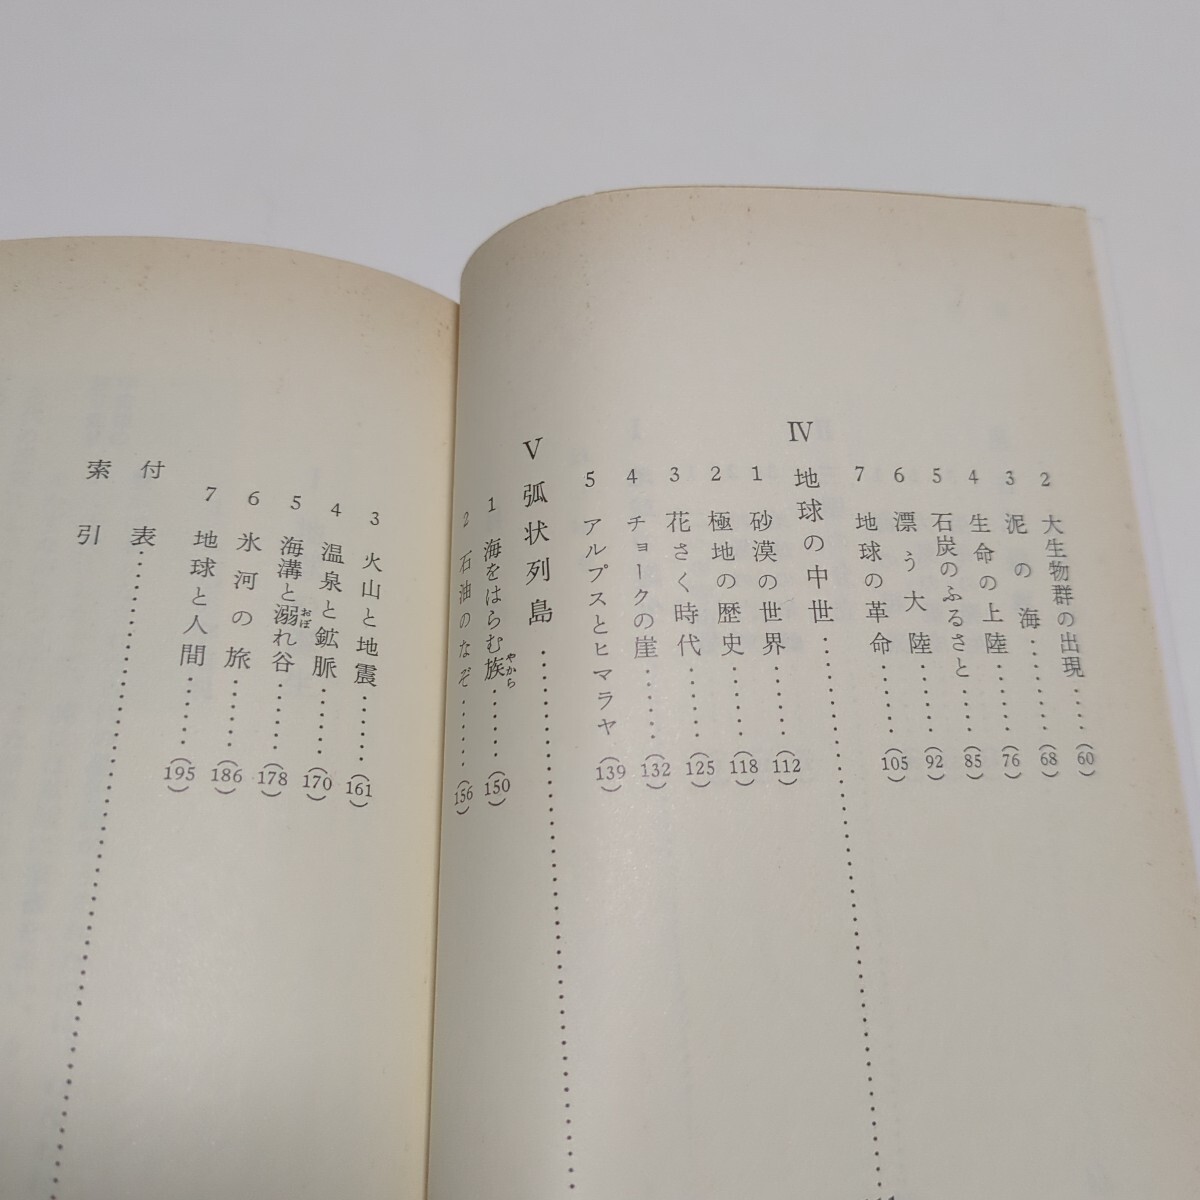 2 大生物群の出現……(60)
3 泥の海……(68)
4 生命の上陸……(76)
5 石炭のふるさと……(85)
6 漂う大陸……(92)
7 地球の革命……(105)
Ⅳ 地球の中世……
1 砂漠の世界……(112)
2 極地の歴史……(118)
3 花さく時代……(125)
4 チョークの崖……(132)
5 アルプスとヒマラヤ (139)
Ⅴ 弧状列島……
1 海をはらむ族やから……(150)
2 石油のなぞ……(156)
3 火山と地震……(161)
4 温泉と鉱脈……(170)
5 海溝と溺おぼれ谷……(178)
6 氷河の旅……(186)
7 地球と人間……(195)
付表……
索引